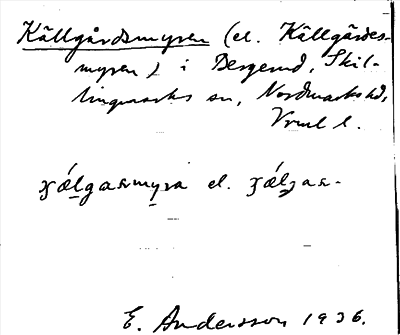 Källgårdsmyren (el. Källgärdes-
myren) i Bergerud, Skil-
lingmarks sn, Nordmarks hd,
Vrml l.
ɣǽlgaꞩmyra el. ɣǽlgaꞩ-
E. Andersson 1936.